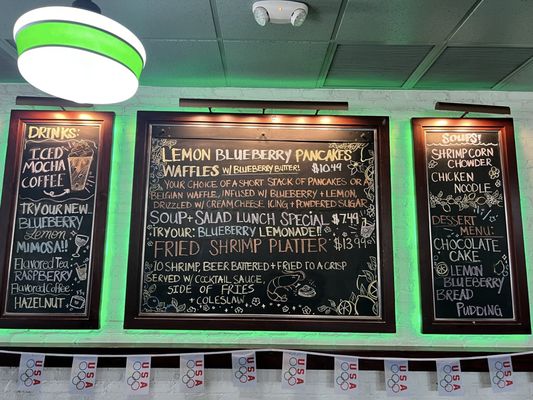 DRINKS:
ICED
MOCHA
COFFEE
TRY OUR NEW...
BLUEBERRY
Lemon
MIMOSA!!
Flavored Tea
RASPBERRY
Flavored Coffee
HAZELNUT
LEMON BLUEBERRY PANCAKES
WAFFLES W/ BLUEBERRY BUTTER! $10.49
YOUR CHOICE OF A SHORT STACK OF PANCAKES OR
BELGIAN WAFFLE, INFUSED W/ BLUEBERRY & LEMON,
DRIZZLED W/ CREAM CHEESE ICING & POWDERED SUGAR
SOUP & SALAD LUNCH SPECIAL $7.49
TRY OUR: BLUEBERRY LEMONADE!!
FRIED SHRIMP PLATTER $13.99
10 SHRIMP, BEER BATTERED & FRIED TO A CRISP
SERVED W/ COCKTAIL SAUCE,
SIDE OF FRIES
& COLESLAW
SOUPS!
SHRIMP CORN
CHOWDER
CHICKEN
NOODLE
DESSERT
MENU:
CHOCOLATE
CAKE
LEMON
BLUEBERRY
BREAD
PUDDING
USA
USA
USA
USA
USA
USA
USA
USA
USA
USA